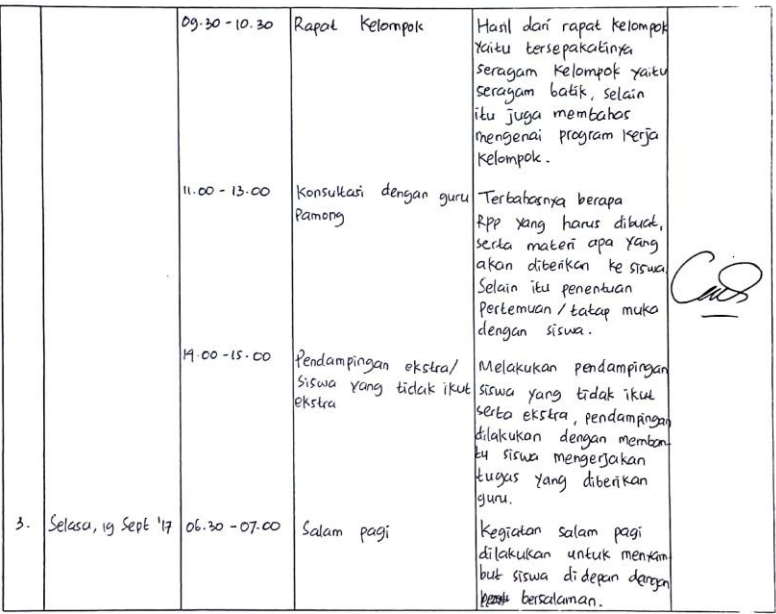 09.30 - 10.30 Rapat Kelompok Hasil dari rapat kelompok
yaitu tersepakatinya
seragam kelompok yaitu
seragam batik, selain
itu juga membahas
mengenai program kerja
kelompok.
11.00 - 13.00 Konsultasi dengan guru Terbahasnya berapa
Pamong RPP yang harus dibuat,
serta materi apa yang
akan diberikan ke siswa
Selain itu penentuan
Pertemuan / tatap muka
dengan siswa.
14.00 - 15.00 Pendampingan ekstra/ Melakukan pendampingan
siswa yang tidak ikut siswa yang tidak ikut
ekstra serta ekstra, pendampingan
dilakukan dengan memban
tu siswa mengerjakan
tugas yang diberikan
guru.
3. Selasa, 19 Sept '17 06.30 - 07.00 Salam pagi Kegiatan salam pagi
dilakukan untuk menyam
but siswa di depan dengan
bersalaman.